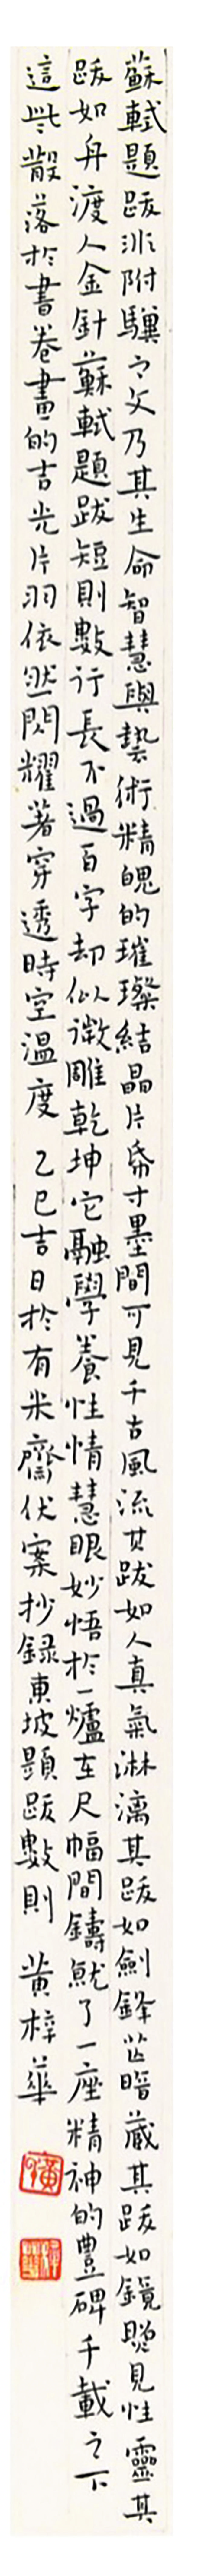 蘇軾題跋非附驥之文乃其生命智慧與藝術精魄的璀璨結晶片帋寸墨間可見千古風流其跋如人真氣淋漓其跋如劍鋒芒暗藏其跋如鏡照見性靈其
跋如舟渡人金針蘇軾題跋短則數行長不過百字却似微雕乾坤它融學養性情慧眼妙悟於一爐在尺幅間鑄就了一座精神的豐碑千載之下
這些散落於書卷畫的吉光片羽依然閃耀著穿透時空溫度 乙巳吉日於有米齋伏案抄録東坡題跋數則 黄梓華